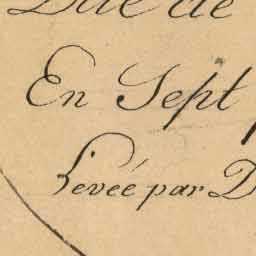 Duc de
En Sept
Levée par D